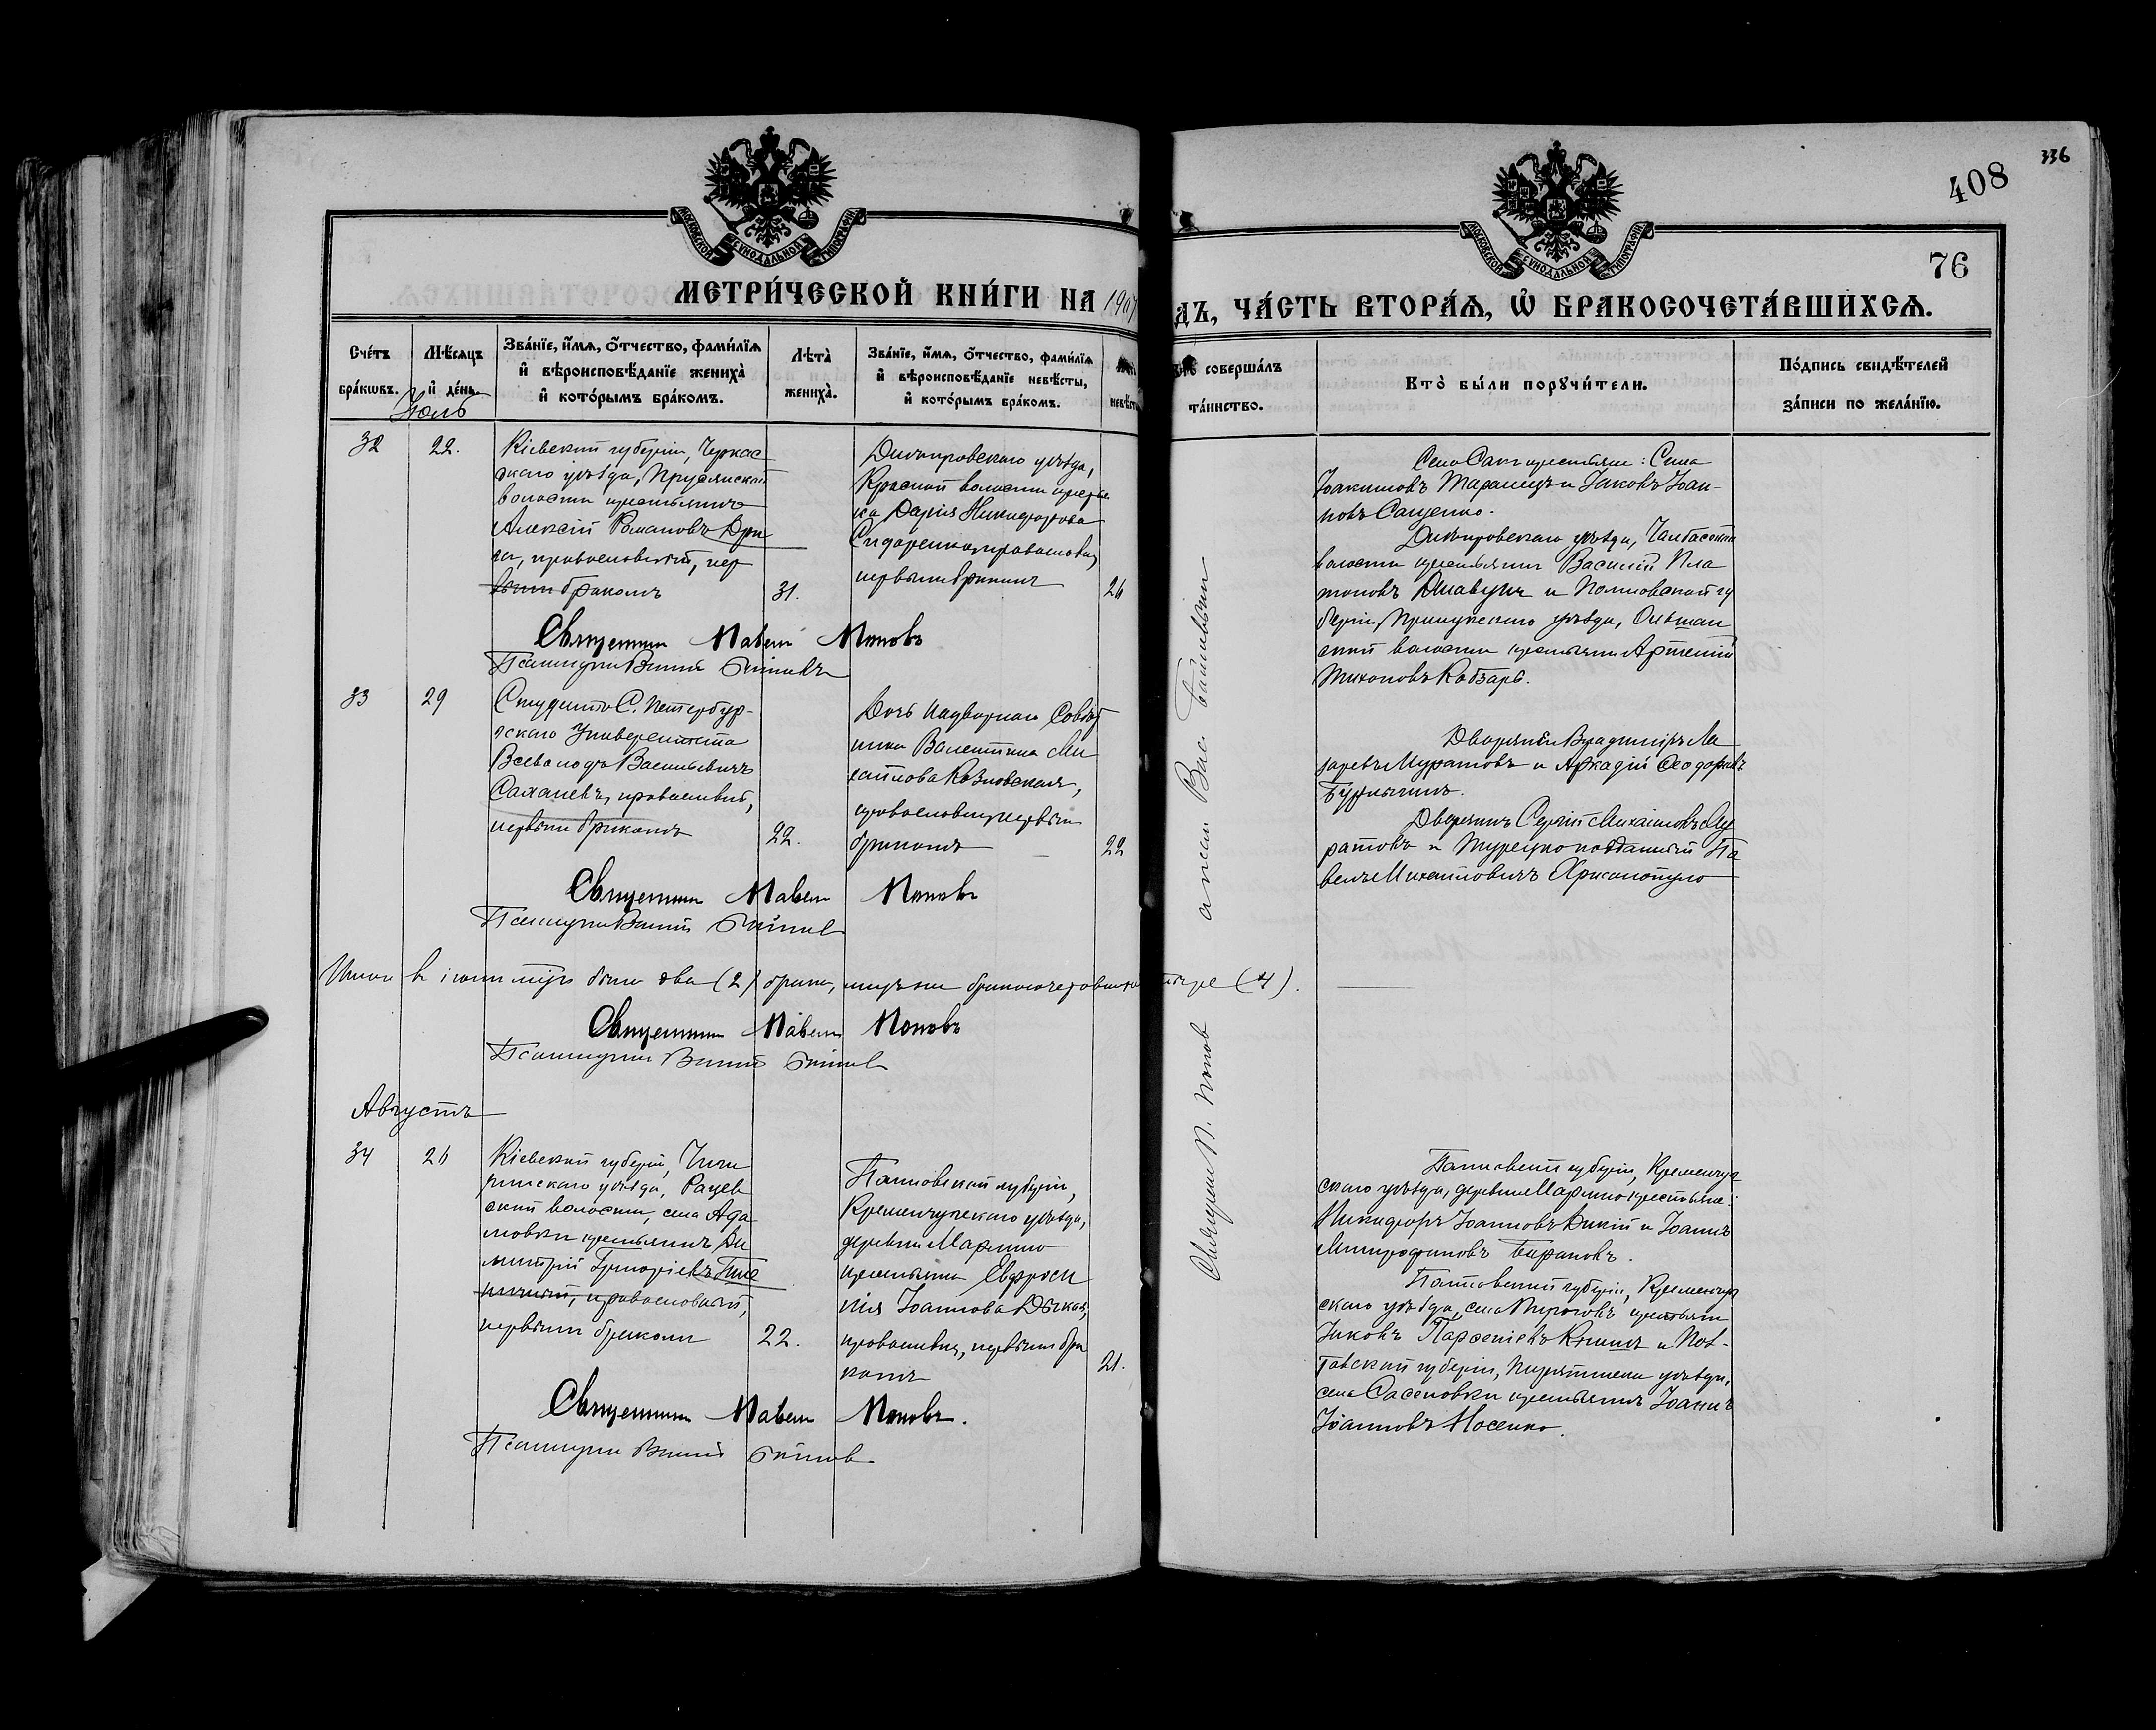 336
408
76
МОСКОВСКОЙ СѴНОДАЛЬНОЙ ТИПОГРАФІИ
МОСКОВСКОЙ СѴНОДАЛЬНОЙ ТИПОГРАФІИ
МЕТРИ́ЧЕСКОЙ КНИ́ГИ НА 1907
ДЪ, ЧА́СТЬ ВТОРА́Я, Ѽ БРАКОСОЧЕТА́ВШИХСЯ.
Сче́тъ бра́кωвъ.
Мѣ́сяцъ и де́нь.
Зва́нїе, и́мя, ѻ́тчество, фами́лїя
и҆ вѣроисповѣ́данїе жениха̀
и҆ кото́рымъ бра́комъ.
Лѣта̀ жениха̀.
Зва́нїе, и́мя, ѻ́тчество, фами́лїя
и҆ вѣроисповѣ́данїе невѣ́сты,
и҆ кото́рымъ бра́комъ.
соверша́лъ
та́инство.
Кто̀ бы́ли порꙋчи́тели.
По́дпись свидѣ́телей
за́писи по жела́нїю.
Іюль
32
22.
Кіевской губерніи, Черкас
скаго уѣзда, Прусянской
волости крестьянинъ
Алексій Романовъ Дри
га, православный, пер
вымъ бракомъ
31.
Днѣпровскаго уѣзда,
Красной волости крестьян
ка Дарія Никифорова
Сидоренкова, православная,
первымъ бракомъ
26
Села Саги крестьяне: Сила
Іоакимовъ Таранецъ и Іаковъ Іоан-
новъ Сащенко.
Днѣпровскаго уѣзда, Чалбасской
волости крестьянинъ Василій Пла
тоновъ и Полтавской гу
берніи, Прилукскаго уѣзда, Ольшан
ской волости крестьянинъ Артемій
Тихоновъ Кобзарь.
Священникъ Павелъ Поповъ
Псаломщикъ
33
29
Студентъ С. Петербур-
гскаго Университета
Всеволодъ Васильевичъ
Сахапевъ, православный,
первымъ бракомъ
22.
Дочь Надворнаго Совѣт
ника Валентина Ми
хайлова Козловская,
православная, первымъ
бракомъ
22
Дворянинъ Владиміръ Ла
заревъ Муратовъ и Аркадій Ѳеодоровъ
Дворянинъ Сергій Михаиловъ Му
ратовъ и Турецкоподданный Па
велъ Михаиловичъ Хрисопотуло
Священникъ Павелъ Поповъ
Псаломщикъ
Итого въ іюлѣ мѣс. было два (2) брака, лицъ же бракосочетавшихся четыре (4).
Священникъ Павелъ Поповъ
Псаломщикъ
Священникъ П. Попов
Августъ
34
26
Кіевской губерніи, Чиги
ринскаго уѣзда, Рацев
ской волости, села Ада
мовки крестьянинъ Ди
митрій Григоріевъ
православный,
первымъ бракомъ
22.
Полтавской губерніи,
Кременчугскаго уѣзда,
деревни Марьино
крестьянка Евфроси
нія Іоаннова Дикая,
православная, первымъ бра
комъ
21.
Полтавской губерніи, Кременчуг
скаго уѣзда, деревни Марьино крестьяне:
Никифоръ Іоанновъ Дикій и Іоаннъ
Митрофановъ Барановъ.
Полтавской губерніи, Кременчуг
скаго уѣзда, села Пироговъ крестьянинъ
Іаковъ Парѳеніевъ и Пол-
тавской губерніи, Пирятинскаго уѣзда,
села Сасиновки крестьянинъ Іоаннъ
Іоанновъ Носенко.
Священникъ Павелъ Поповъ.
Псаломщикъ